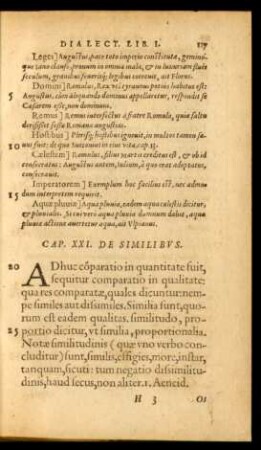 DIALECT. LIB. I.
Leges] Augustus, pace toto imperio constituta, geminũ-
que iano
seculum, grauibus seuerisq́; legibus coercuit, ait Florus.
Domum] Romulus, Rex: vel
Augustus, cùm aliquando dominus appellaretur, respondit se
Cæsarem esse, non dominum.
Remus] Remus interfectus à fratre Romulo, quia saltu
derisisset fossas Romani
Hostibus] hostibus ignouit, in multos tamen
10
Cælestem] Romulus, filius Martis creditus est, & ob id
consecratus: Augustus autem, Iulium, à quo erat adoptatus,
consecrauit.
Imperatorem] Exemplum hoc facilius est, nec admo-
15 dum interpretem requirit.
Aquæ pluuiæ] Aqua pluuia, eadem aqua cælestis dicitur,
& pluuialis. Si cui verò aqua pluuia damnum dabit, aquæ
pluuiæ actione auertetur aqua, ait Vlpianus.
CAP. XXI. DE SIMILIBVS.
20 ADhuc cõparatio in quantitate fuit,
sequitur comparatio in qualitate:
qua res comparatæ, quales dicuntur: nem-
pe similes aut dissimiles. Similia sunt, quo-
rum est eadem qualitas. similitudo, pro-
25 portio dicitur, vt similia, proportionalia.
Notæ similitudinis ( quæ vno verbo con-
cluditur) sunt, similis, effigies, more, instar,
tanquam, sicuti: tum negatio dissimilitu-
dinis, haud secus, non aliter. 1. Aeneid.
H 3 Os